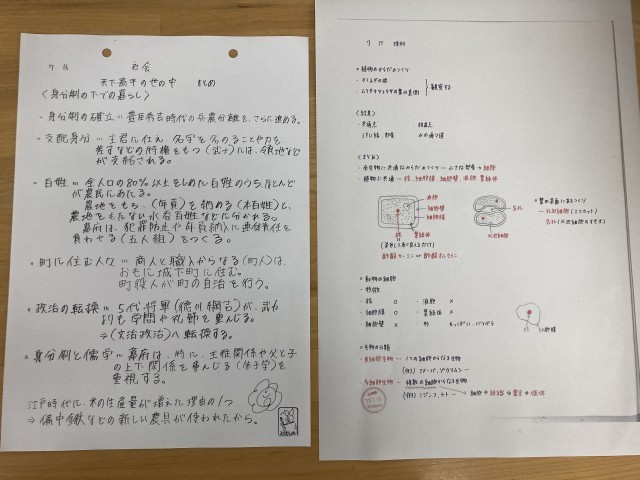 7 15 社会
天下泰平の世の中 まとめ
〈身分制の下での暮らし〉
・身分制の確立 = 豊臣秀吉時代の兵農分離を、さらに進める。
・支配身分 = 主君に仕え、名字を名のることや刀を
差すなどの特権をもつ(武士)には、領地など
が支給される。
・百姓 = 全人口の80%以上をしめた百姓のうち、ほとんど
が農民にあたる。
農地をもち、(年貢)を納める(本百姓)と、
農地をもたない水呑百姓などに分かれる。
幕府は、犯罪防止や年貢納入に連帯責任を
負わせる(五人組)をつくる。
・町に住む人々 = 商人と職人からなる(町人)は、
おもに城下町に住む。
町役人が町の自治を行う。
・政治の転換 = 5代将軍(徳川綱吉)が、武力
よりも学問や礼節を重んじる。
⇒(文治政治)へ転換する。
・身分制と儒学 = 幕府は、特に、主従関係や父と子
の上下関係を重んじる(朱子学)を
重視する。
江戸時代に、米の生産量が増えた理由の1つ
⇒ 備中鍬などの新しい農具が使われたから。
7 15 理科
・植物のからだのつくり
・タマネギの根
・ムラサキツユクサの葉の裏側
観察する
〈結果〉
・共通点 ・相違点
〈まとめ〉
・植物に共通 … 核、細胞膜、細胞壁、液胞、葉緑体
液胞
細胞壁
細胞膜
核
葉緑体
気孔
孔辺細胞
(染色して赤く見えるだけ)
酢酸カーミン or 酢酸オルセイン
・葉の表面にあるつくり
・動物の細胞
・特徴
核 ○ ・液胞 ×
細胞膜 ○ ・葉緑体 ×
細胞壁 ×
核 細胞膜
・生物の分類
・単細胞生物 … 1つの細胞からなる生物
(例) アメーバ、ゾウリムシ…
・多細胞生物 … 複数の細胞からなる生物
(例) ミジンコ、ヒト… 細胞 → 組織 → 器官 → 個体